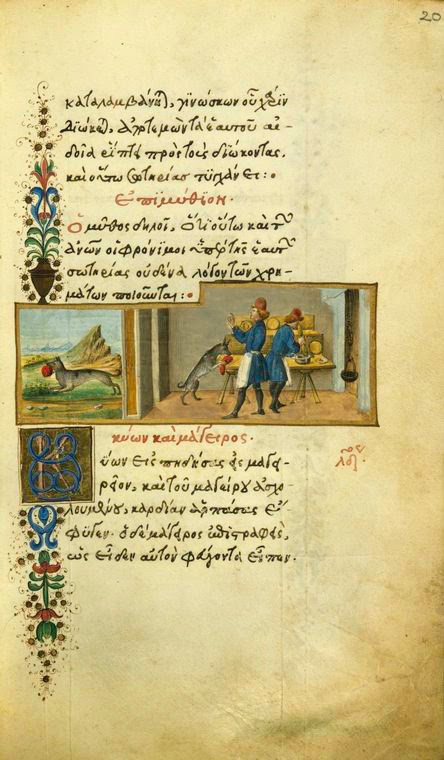 20
καταλαμβάνηται, γινώσκων οὗ χάριν
διώκεται, ἀποτεμὼν τὰ ἑαυτοῦ αἰ-
δοῖα ῥίπτει πρὸς τοὺς διώκοντας,
καὶ οὕτω σωτηρίας τυγχάνει:
Ἐπιμύθιον.
Ὁ μῦθος δηλοῖ, ὅτι οὕτω καὶ τῶν
ἀνῶν οἱ φρόνιμοι ὑπὲρ τῆς ἑαυτῶν
σωτηρίας οὐδένα λόγον τῶν χρη-
μάτων ποιοῦνται:
κύων καὶ μάγειρος.
Κύων εἰσπηδήσας ἐς μαγει-
ρεῖον, καὶ τοῦ μαγείρου ἀσχο-
λουμένου, καρδίαν ἁρπάσας ἔ-
φυγεν. ὁ δὲ μάγειρος ἐπιστραφεὶς,
ὡς εἶδεν αὐτὸν φεύγοντα εἶπεν.